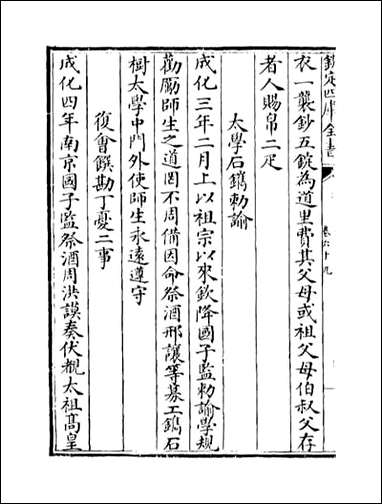 欽定四庫全書
卷六十九
衣一襲鈔五錠為道里費其父母或祖父母伯叔父存
者人賜帛二疋
太學石鐫勅諭
成化三年二月上以祖宗以來欽降國子監勅諭學規
勸勵師生之道罔不周備因命祭酒邢讓等募工鐫石
樹太學中門外使師生永遠遵守
復會饌勘丁憂二事
成化四年南京國子監祭酒周洪謨奏伏覩太祖高皇